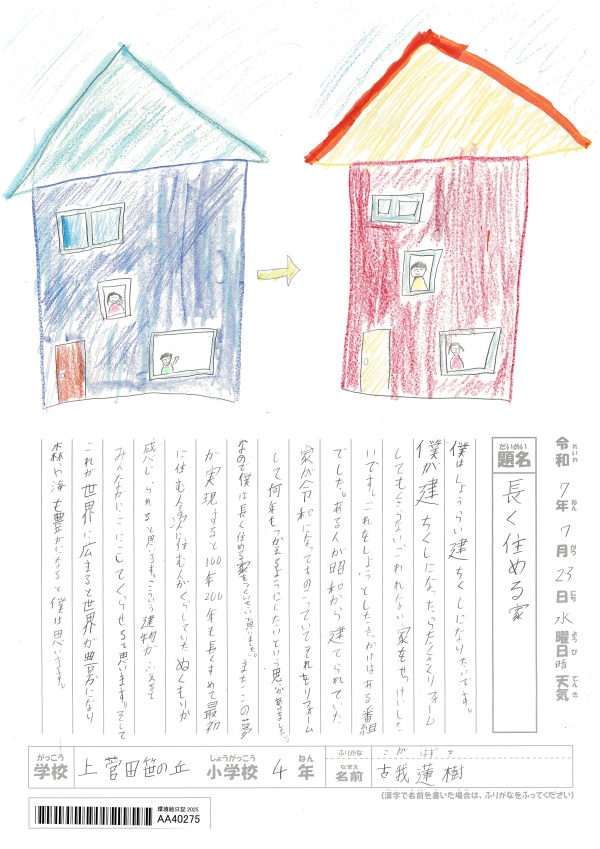 令和7年7月23日水曜日 時 天気
れいわ ねん がつ にち ようび てんき
だいめい
題名
長く住める家
僕はしょうらい建ちくしになりたいです。
僕が建ちくしになったらたくさんリフォーム
してもくずれない、こわれない家をせっけいした
いです。これをしようとしたきっかけはある番組
でした。ある人が昭和から建てられていた
家が令和になってものこっていてそれをリフォーム
して何年もつかえるようにしたいという思いがありました。
なので僕は長く住める家をつくりたいと思いました。またこの夢
が実現すると100年200年も長くすめて最初
に住む人、次に住む人がくらしていたぬくもりが
感じられると思います。こういう建物がふえて
みんながにこにこしてくらせると思います。そして
これが世界に広まると世界が豊かになり
森や海も豊かになると僕は思います。
がっこう
学校
上菅田笹の丘
しょうがっこう
小学校
4
ねん
年
ふりがな
こが はずき
なまえ
名前
古我 蓮樹
(漢字で名前を書いた場合は、ふりがなをふってください)
環境絵日記2025
AA40275